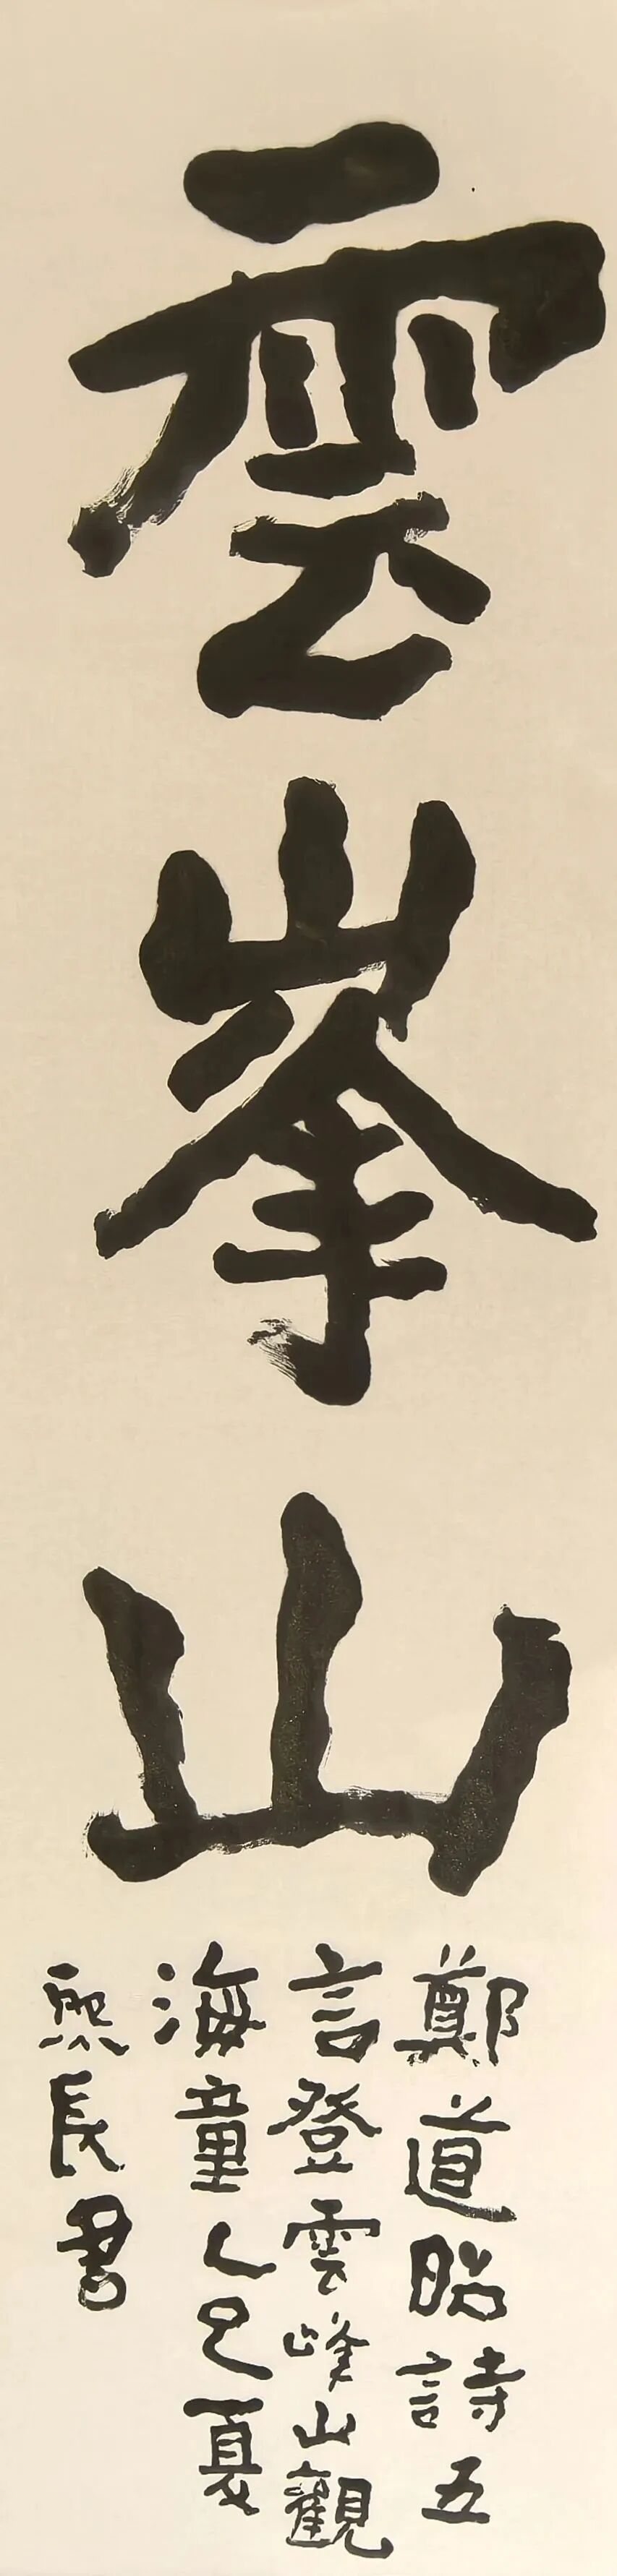 雲峯山
鄭道昭詩五
言登雲峰山觀
海童乙巳夏
熙長書